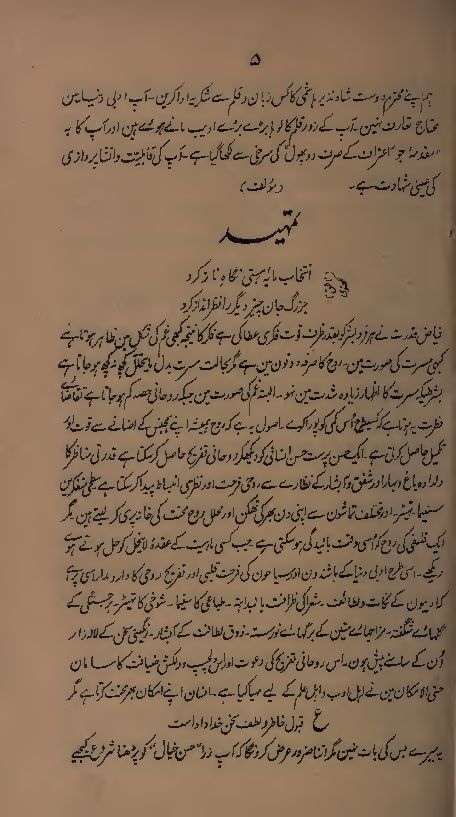 ۵
ہم اپنے محترم دوست شاونذیر ہاشمی کا کس زبان و قلم سے شکریہ ادا کرین۔ آپ ادبی دنیا مین
محتاج تعارف نہین۔ آپ کے زور قلم کا لوہا بڑے بڑے ادیب مانے ہوئے ہین اور آپ کا یہ
مقدمہ جو "اعتراف کے صرف دو پھول" کی سرخی سے لکھا گیا ہے۔ آپ کی قابلیت و انشا پردازی
کی عینی شہادت ہے۔ (مؤلف)
تمہید
انتخاب مایہ ہستی نگاہِ ناز کرد
جز رگ جان چیز دیگر را نظر انداز کرد
فیاض قدرت نے ہر فرد بشر کو بقدر ظرف قوت فکری عطا کی ہے فکر کا نتیجہ کبھی غم کی شکل مین ظاہر ہوتا ہے
کبھی مسرت کی صورت مین۔ روح کا صرفہ دونون مین ہے مگر بحالت مسرت بدل ما یتحلل کچھ نہ کچھ ہو جاتا ہے
بشرطیکہ مسرت کا اظہار زیادہ شدت مین نہو۔ البتہ غم کی صورت مین جبکہ روحانی حصہ کم ہو جاتا ہے تقاضائے
فطرت یہ ہوتا ہے کہ کسی طرح اُس کمی کو پورا کرے۔ اصول یہ ہے کہ روح ہمیشہ اپنے ہم جنس کے اضافے سے قوت اور
تکمیل حاصل کرتی ہے۔ ایک حسن پرست حسن انسانی کو دیکھکر روحانی تفریح حاصل کر سکتا ہے قدرتی مناظر کا
دلدادہ باغ و بہار اور شفق و آبشار کے نظارے سے روحی فرحت اور نظری انبساط پیدا کر سکتا ہے سطحی متفکرین
سنیما۔ تھیٹر۔ اور مختلف تماشون سے اپنی دن بھر کی تھکن اور محلل روح محنت کی خانہ پری کر لیتے ہین مگر
ایک فلسفی کی روح کو اُسی وقت بالیدگی ہو سکتی ہے جب کسی ماہیت کے عقدۂ لاینحل کو حل ہوتے ہوئے
دیکھے۔ اسی طرح ادبی دنیا کے باشندون اور سیاحون کی فرحت قلبی اور تفریح روحی کا دار و مدار اسی پر ہے
کہ ادیبون کے نکات و لطائف۔ شعرا کی ظرافت
گلہائے شگفتہ۔ ذوق لطافت کے آبشار۔ رنگینی سخن کے لالہ زار
اُن کے سامنے پیش ہون۔ اس روحانی تفریح کی دعوت اور اس دلچسپ و دلکش ضیافت کا سامان
حتی الامکان مین نے اہل ادب و اہل علم کے لیے مہیا کیا ہے۔ انسان اپنے امکان بھر محنت کرتا ہے مگر
ع قبول خاطر و لطف سخن خداداد است
یہ میرے بس کی بات نہین مگر اتنا ضرور عرض کرونگا کہ آپ ذرا "حسن خیال" کو پڑھنا شروع کیجیے